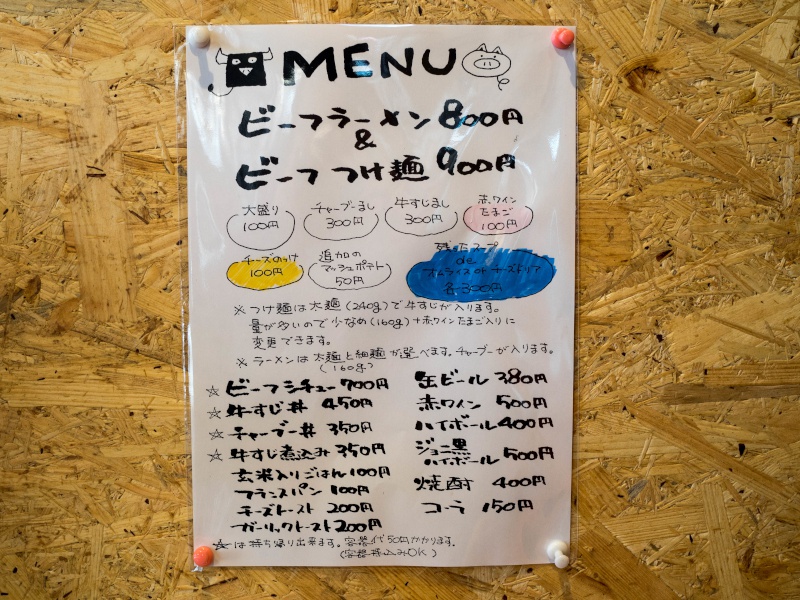 MENU
ビーフラーメン 800円
&
ビーフつけ麺 900円
大盛り
100円
チャーブーまし
300円
牛すじまし
300円
赤ワイン
たまご
100円
チーズのっけ
100円
追加の
マッシュポテト
50円
残ったスープ
de
オムライス or チーズドリア
各300円
※つけ麺は太麺(240g)で牛すじが入ります。
量が多いので少なめ(160g)+赤ワインたまご入りに
変更できます。
※ラーメンは太麺と細麺が選べます。チャーブーが入ります。
(160g)
☆ビーフシチュー 700円
☆牛すじ丼 450円
☆チャーブー丼 350円
☆牛すじ煮込み 350円
玄米入りごはん 100円
フランスパン 100円
チーズトースト 200円
ガーリックトースト 200円
缶ビール 380円
赤ワイン 500円
ハイボール 400円
ジョニ黒
ハイボール 500円
焼酎 400円
コーラ 150円
☆は持ち帰り出来ます。容器代50円かかります。
(容器持込みOK)